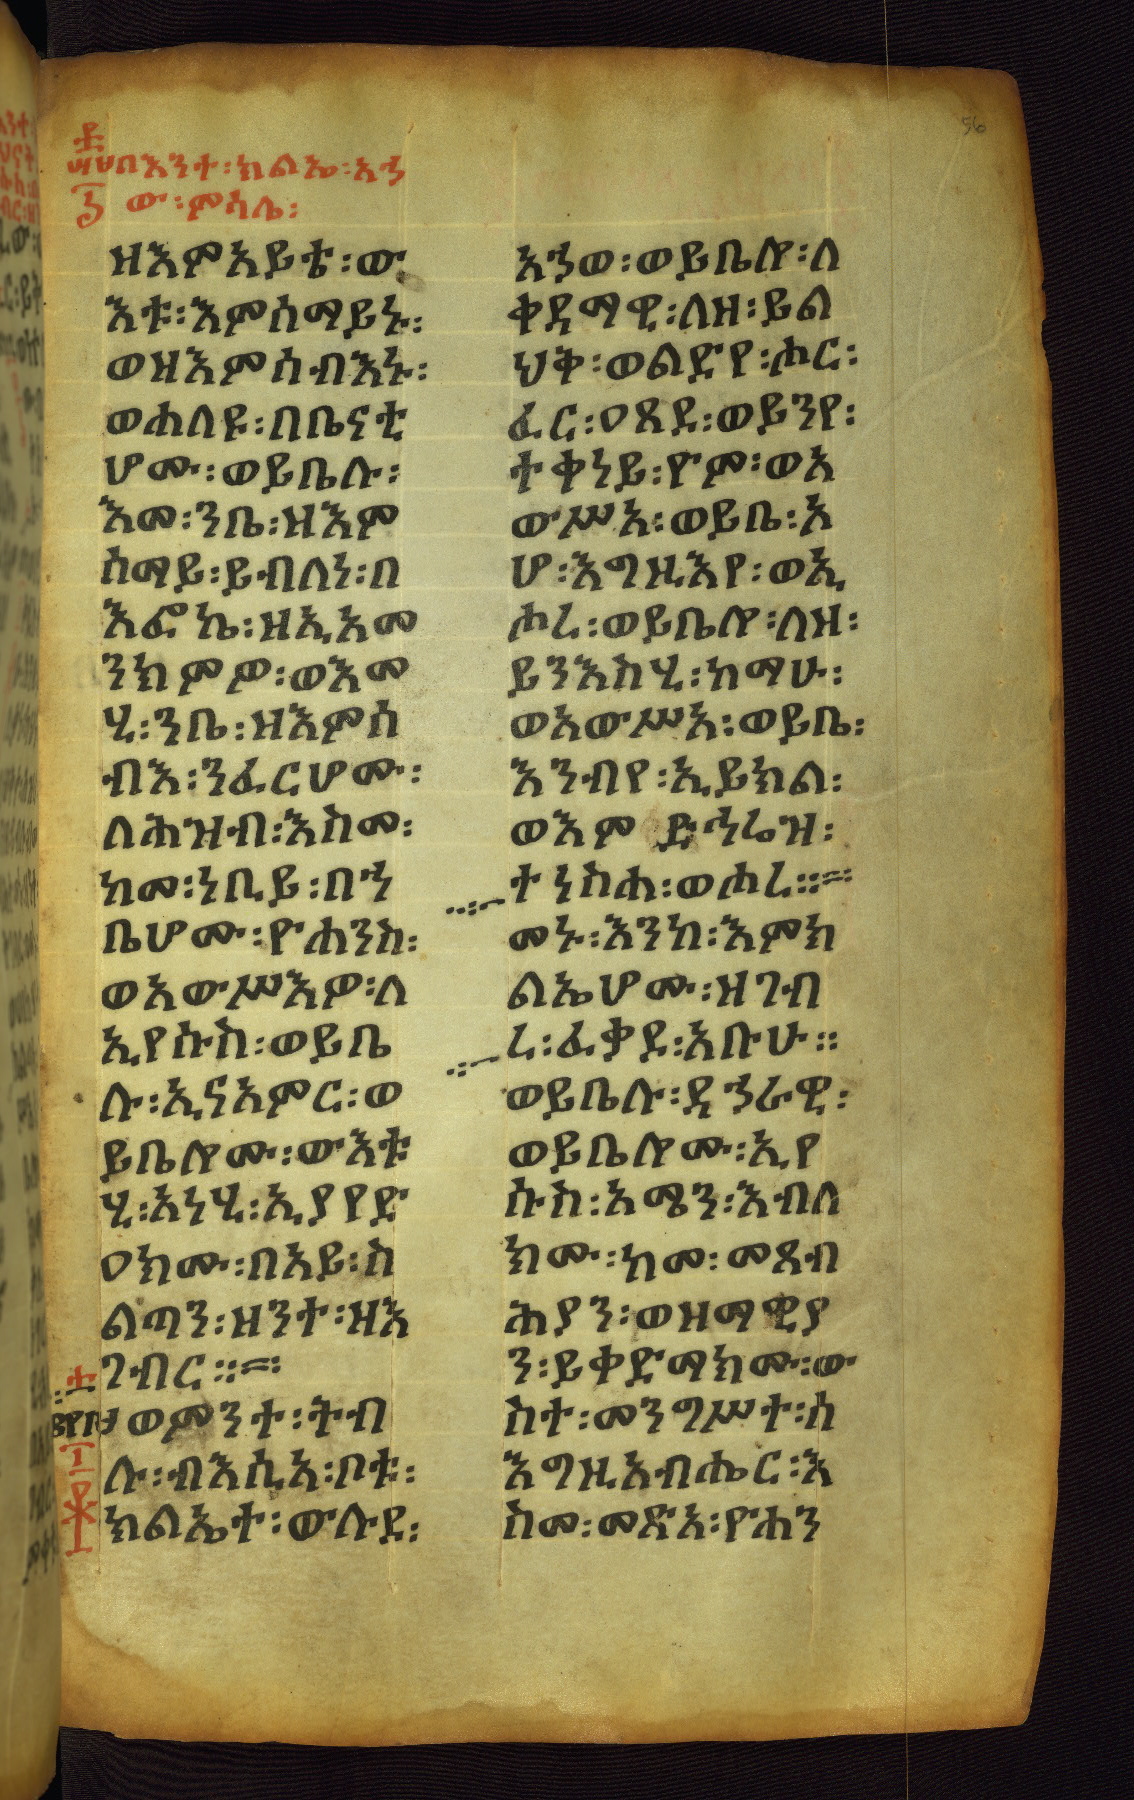 56
፷ሠህ በእንተ፡ክልኤ፡አኀ
፩ ው፡ምሳሌ፡
ዘእምአይቴ፡ው
እቱ፡እምሰማይኑ፡
ወዘእምሰብእኑ፡
ወሐለዩ፡በቤናቲ
ሆሙ፡ወይቤሉ፡
እመ፡ንቤ፡ዘእም
ስማይ፡ይብለነ፡በ
እፎኬ፡ዘኢአመ
ንክምዎ፡ወእመ
ሂ፡ንቤ፡ዘእምሰ
ብእ፡ንፈርሆሙ፡
ለሕዝብ፡እስመ፡
ከመ፡ነቢይ፡በኀ
ቤሆሙ፡ዮሐንስ፡
ወአውሥእዎ፡ለ
ኢየሱስ፡ወይቤ
ሉ፡ኢናአምር፡ወ
ይቤሎሙ፡ውእቱ
ሂ፡አነሂ፡ኢያየድ
ዐክሙ፡በአይ፡ስ
ልጣን፡ዘንተ፡ዘእ
ገብር፡፡
ወምንተ፡ትብ
ሉ፡ብእሲአ፡ቦቱ፡
ክልኤተ፡ውሉደ፡
አኀወ፡ወይቤሎ፡ለ
ቀዳማዊ፡ለዘ፡ይል
ህቅ፡ወልድየ፡ሖር፡
ፈር፡ዐጸደ፡ወይንየ፡
ተቀነይ፡ዮም፡ወአ
ውሥአ፡ወይቤ፡እ
ሆ፡እግዚእየ፡ወኢ
ሖረ፡ወይቤሎ፡ለዘ፡
ይንእስሂ፡ከማሁ፡
ወአውሥአ፡ወይቤ፡
እንብየ፡ኢይክል፡
ወእም ድኅሬዝ፡
ተነስሐ፡ወሖረ፡፡
መኑ፡እንከ፡እምክ
ልኤሆሙ፡ዘገብ
ረ፡ፈቃደ፡አቡሁ፡፡
ወይቤሉ፡ዳኀራዊ፡
ወይቤሎሙ፡ኢየ
ሱስ፡አሜን፡እብለ
ክሙ፡ከመ፡መጸብ
ሕያን፡ወዘማዊያ
ን፡ይቀድማክሙ፡ው
ስተ፡መንግሥተ፡ሰ
እግዚአብሔር፡እ
ስመ፡መጽአ፡ዮሐን